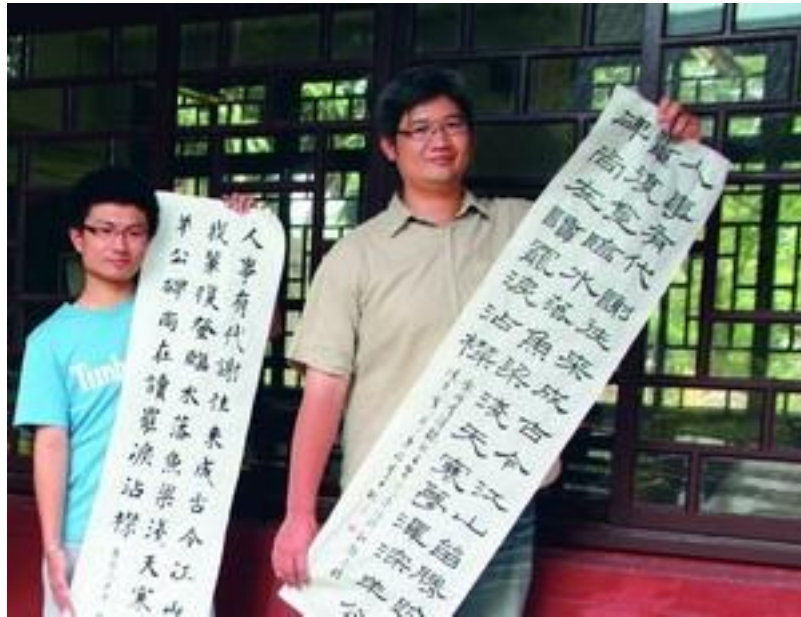 人事有代謝往來成古今江山
我輩復登臨水落魚梁淺天寒
羊公碑尚在讀罷淚沾襟
人事有代謝往來成古今江山留勝跡
輩復登臨水落魚梁淺天寒夢澤深羊公
碑尚在讀罷淚沾襟